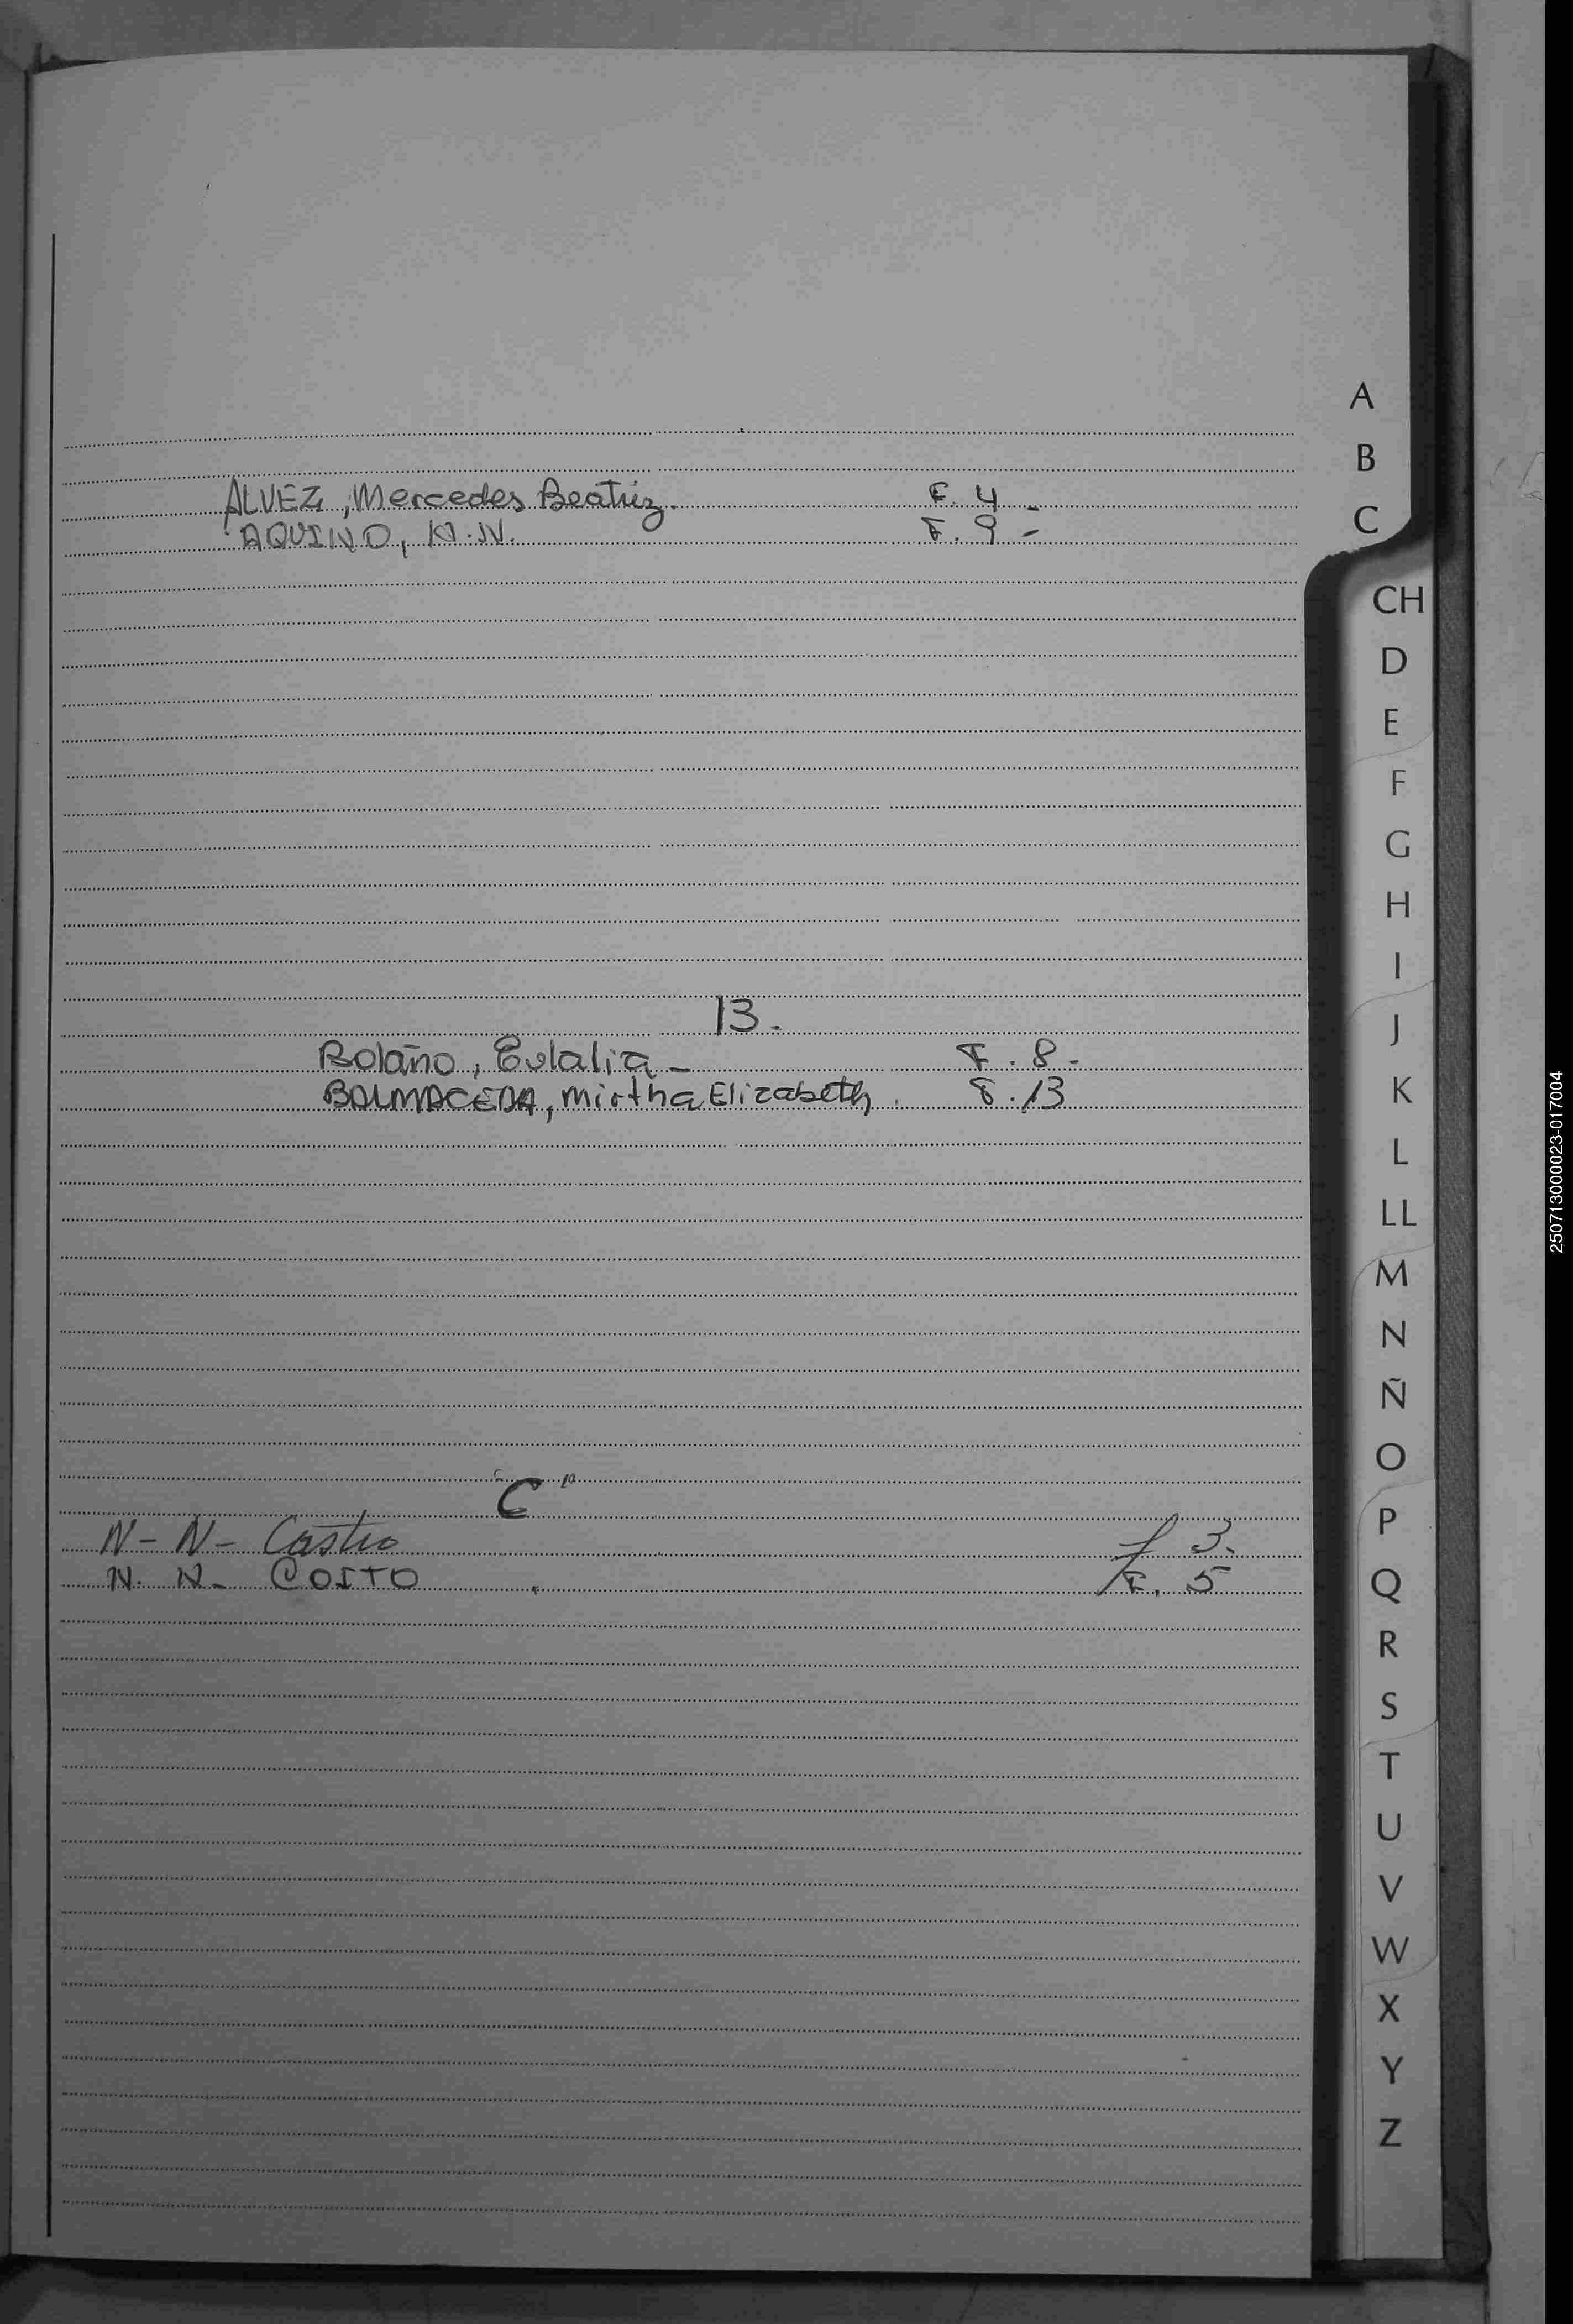 ALVEZ, Mercedes Beatriz. F. 4 -
AQUINO, N.N. F. 9 -
B.
Bolaño, Eulalia - F. 8.-
BALMACEDA, Mirtha Elizabeth. F. 13
"C"
N- N- Castro f 3.
N. N- COITO F. 5
A
B
C
CH
D
E
F
G
H
I
J
K
L
LL
M
N
Ñ
O
P
Q
R
S
T
U
V
W
X
Y
Z
250713000023-017004